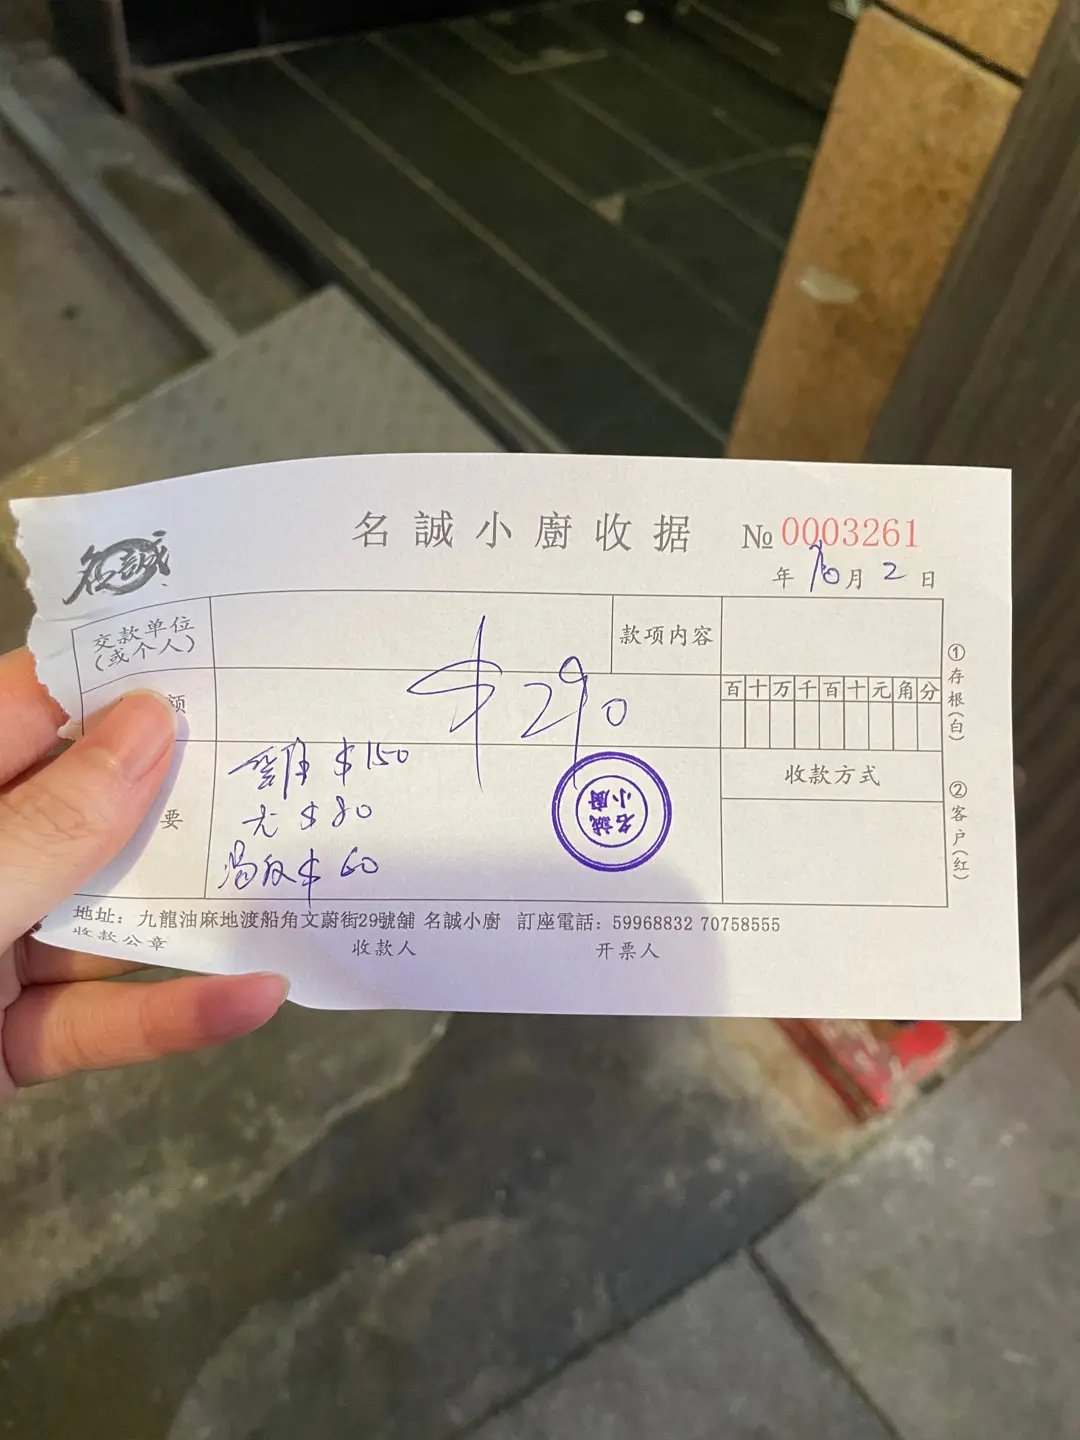 名誠
名誠小廚收据 № 0003261
年 10 月 2 日
交款单位
(或个人)
款项内容
额
$290
百 十 万 千 百 十 元 角 分
收款方式
要
$150
$80
$60
名誠
小廚
①存根(白)
②客户(红)
地址: 九龍油麻地渡船角文蔚街29號舖 名誠小廚 訂座電話: 59968832 70758555
收款公章 收款人 开票人